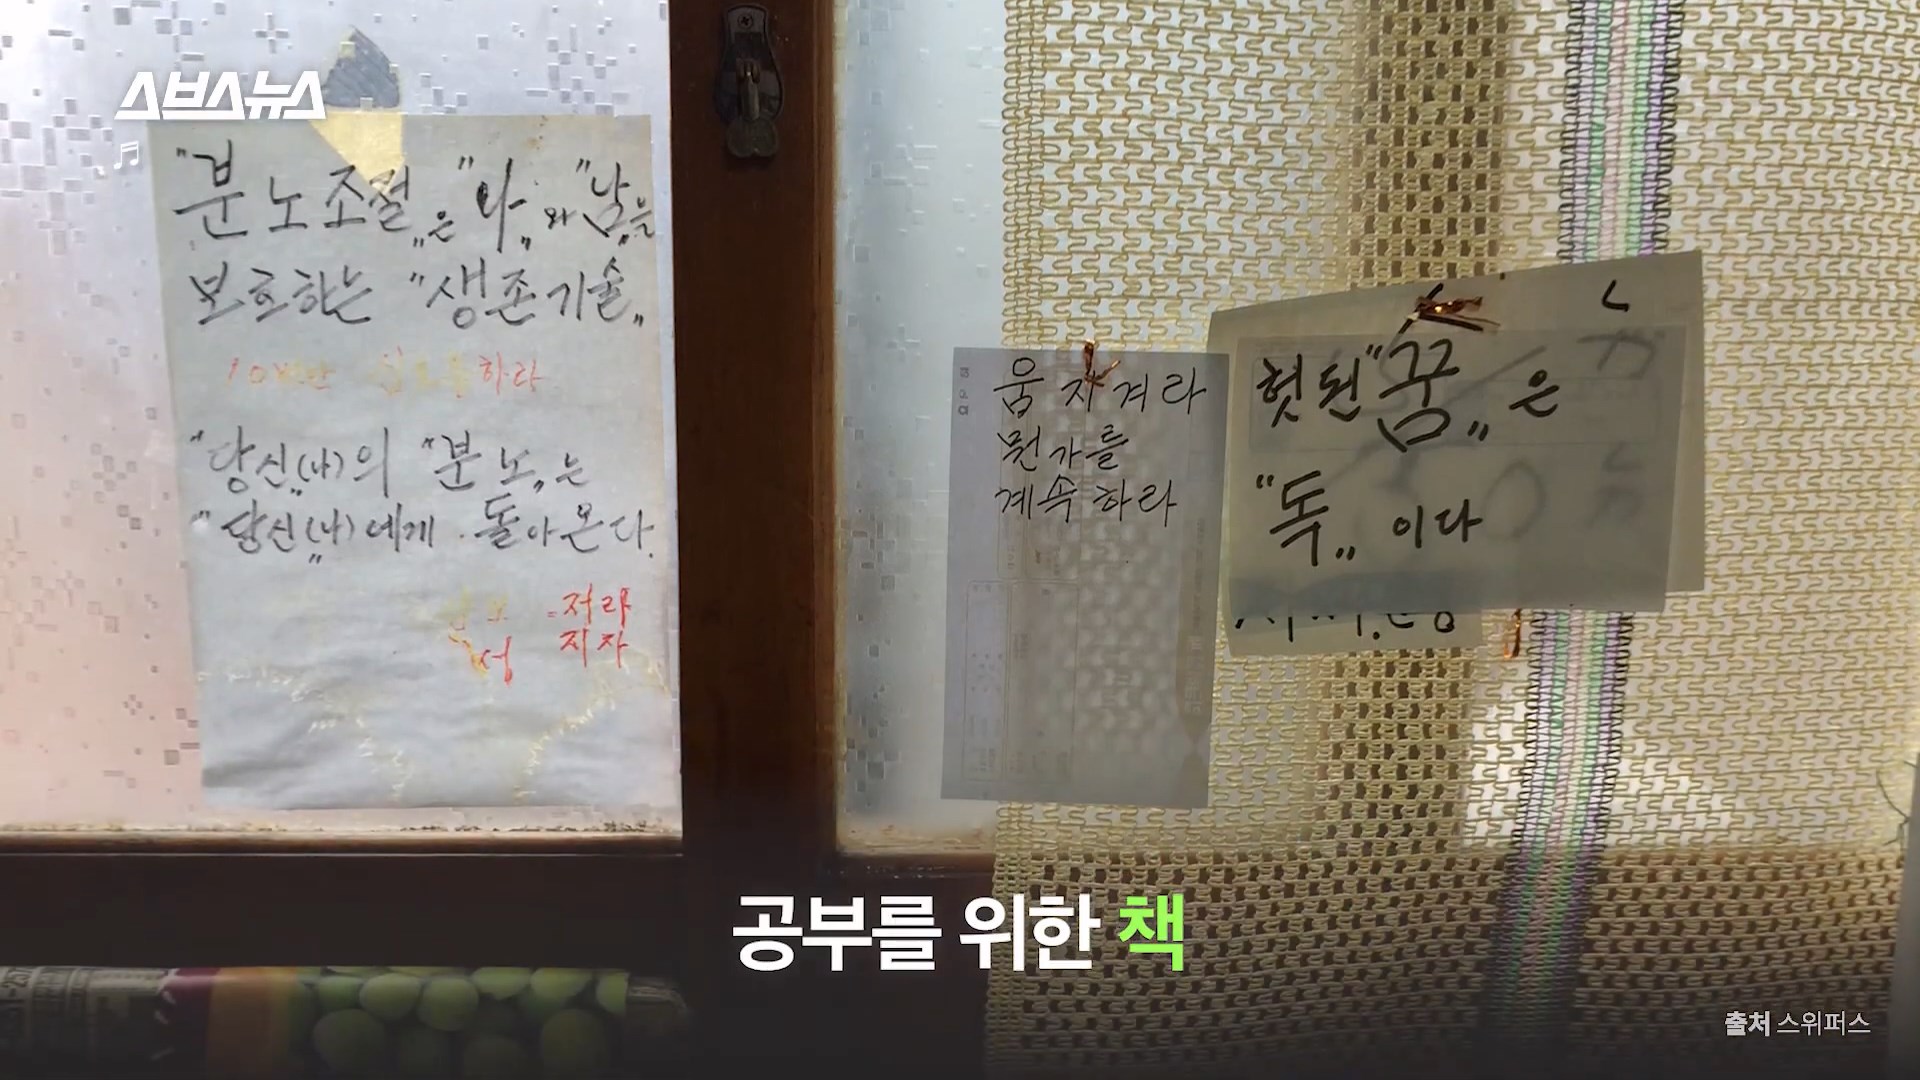 스브스뉴스
"분노조절„은 "나„와 "남„을
보호하는 "생존기술„
하라
"당신„(나)의 "분노„는
"당신„(나)에게 돌아온다.
저라
지자
움직여라
뭔가를
계속하라
헛된 "꿈„은
"독„이다
공부를 위한 책
출처 스위퍼스